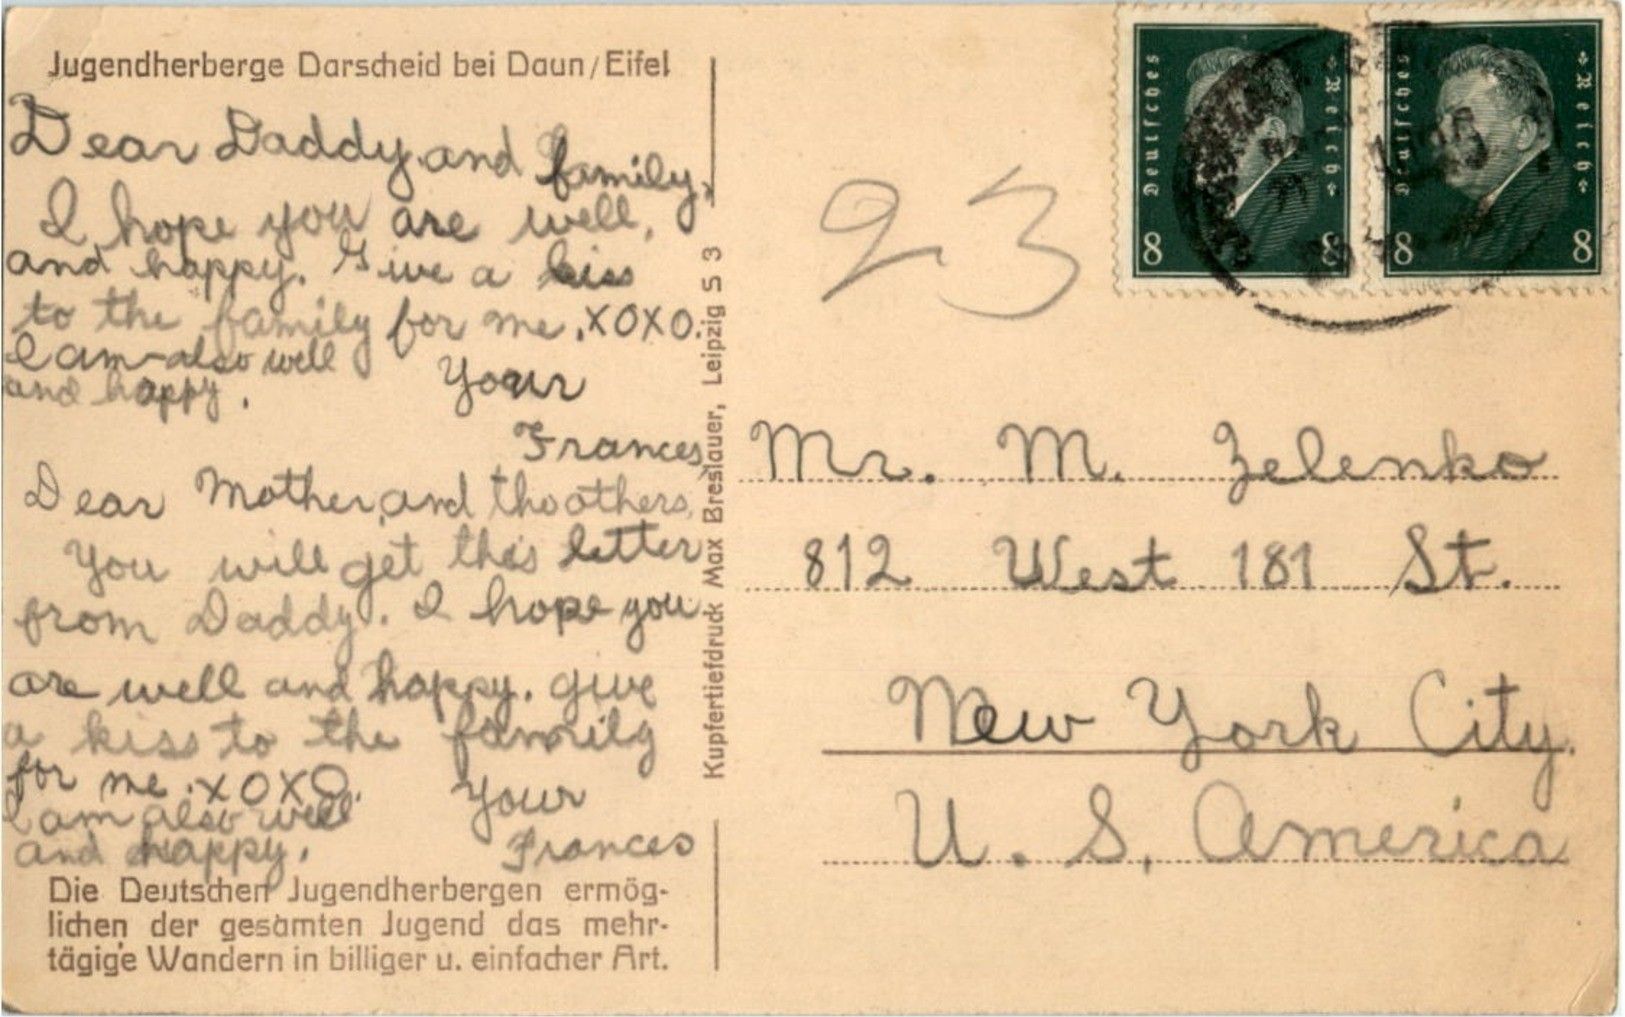 Jugendherberge Darscheid bei Daun/Eifel
Dear Daddy and family,
I hope you are well,
and happy. Give a kiss
to the family for me. XOXO.
I am also well
and happy.
Your
Frances
Dear Mother, and the others,
You will get this letter
from Daddy. I hope you
are well and happy. give
a kiss to the family
for me. XOXO.
I am also well
and happy.
Your
Frances
Die Deutschen Jugendherbergen ermög-
lichen der gesamten Jugend das mehr-
tägige Wandern in billiger u. einfacher Art.
Kupfertiefdruck Max Breslauer, Leipzig S 3
23
Deutsches Reich
8 8
Deutsches Reich
8 8
Mr. M. Zelenko
812 West 181 St.
New York City.
U. S. America